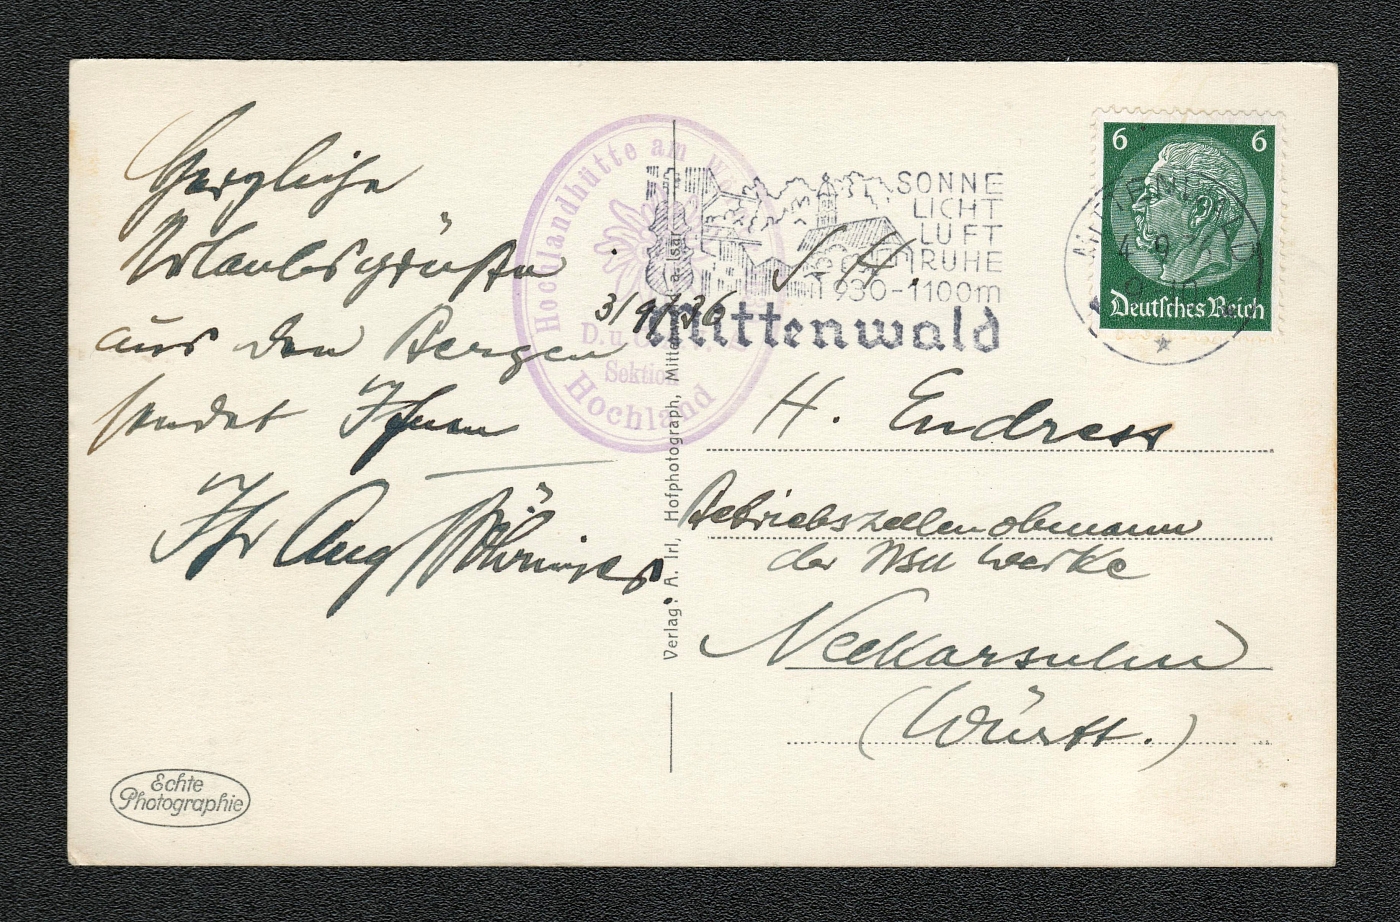 Herzliche
Urlaubsgrüße
aus den Bergen
sendet Ihnen
Ihr Aug
3/9/36
Echte
Photographie
Hochlandhütte am
D. u.
Sektion
Hochland
Verlag: A. Irl, Hofphotograph,
SONNE
LICHT
LUFT
RUHE
930-1100m
Mittenwald
6 6
Deutsches Reich
MITTENWALD
S. H.
H. Endress
Betriebszellenobmann
der NSU Werke
Neckarsulm
(Württ.)